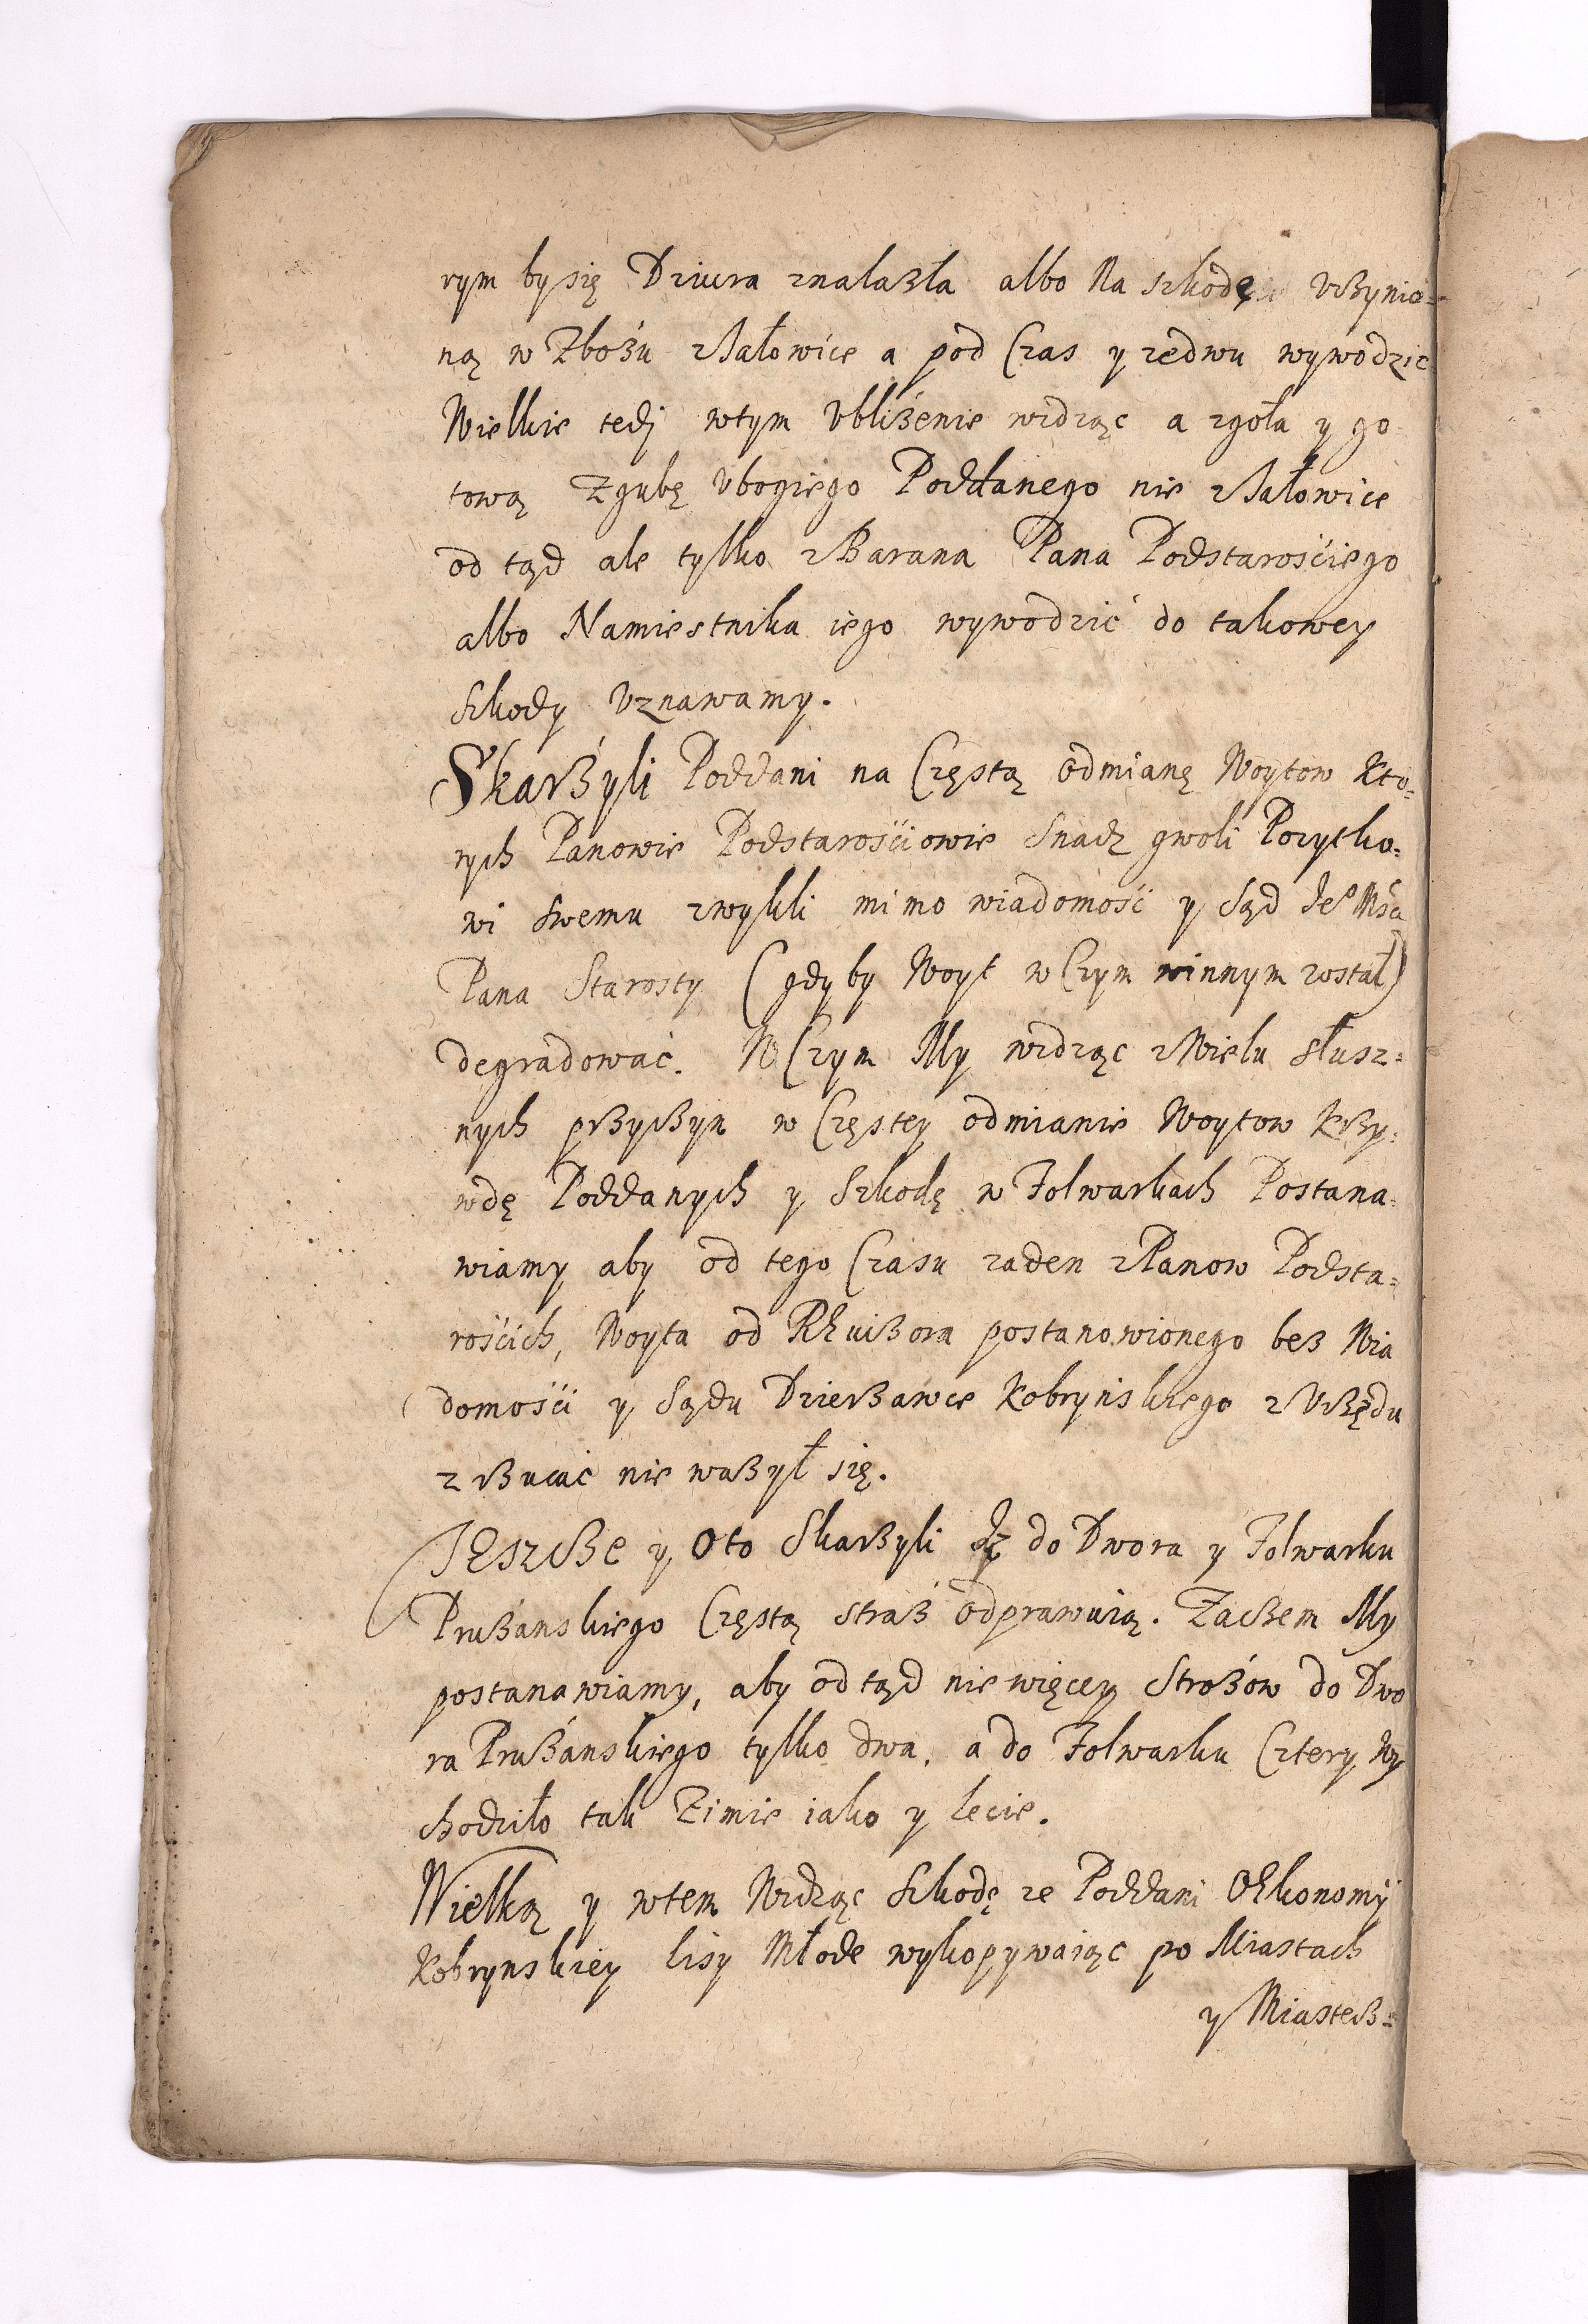 rym by się Dziura znalazła albo Na szkodę vczynio=
ną w Zbożu z Jałowice a pod Czas y ze dwu wywodzic
Wielkie tedj wtym Vbliżenie widząc a zgoła y go
tową Zgubę Vbogiego Poddanego nie z Jałowice
od tąd ale tylko z Barana Pana Podstarościego
albo Namiestnika iego wywodzić do takowey
szkody Vznawamy.
Skarżyli Poddani na Częstą odmianę Woytow Kto=
rych Panowie Podstarościowie snadz gwoli Pozytko=
wi swemu zwykli mimo wiadomość y Sąd Je° Mści
Pana Starosty (gdy by Woyt w Czym winnym został)
degradować. W Czym My widząc z Wielu słusz=
nych przyczyn w Częstey odmianie Woytow Krzy=
wdę Poddanych y Szkodę w Folwarkach Postana=
wiamy aby od tego Czasu zaden z Panow Podsta=
rościch, Woyta od REwizora postanowionego bez Wia
domości y Sądu Dzierżawce Kobrynskiego z Vrzędu
zrzucać nie ważył się.
JEszcze y o to Skarżyli Jż do Dwora y Folwarku
Prużanskiego Częstą straż odprawuią. Zaczem My
postanawiamy, aby odtąd nie więcey Strożow do Dwo
ra Prużanskiego tylko dwa, a do Folwarku Cztery Wy
chodziło tak Zimie iako y lecie.
Wielką y wtem Widząc Szkodę ze Poddani OEkonomÿ
Kobrynskiey lisy Młode wykopywaiąc po Miastach
y Miastecz=